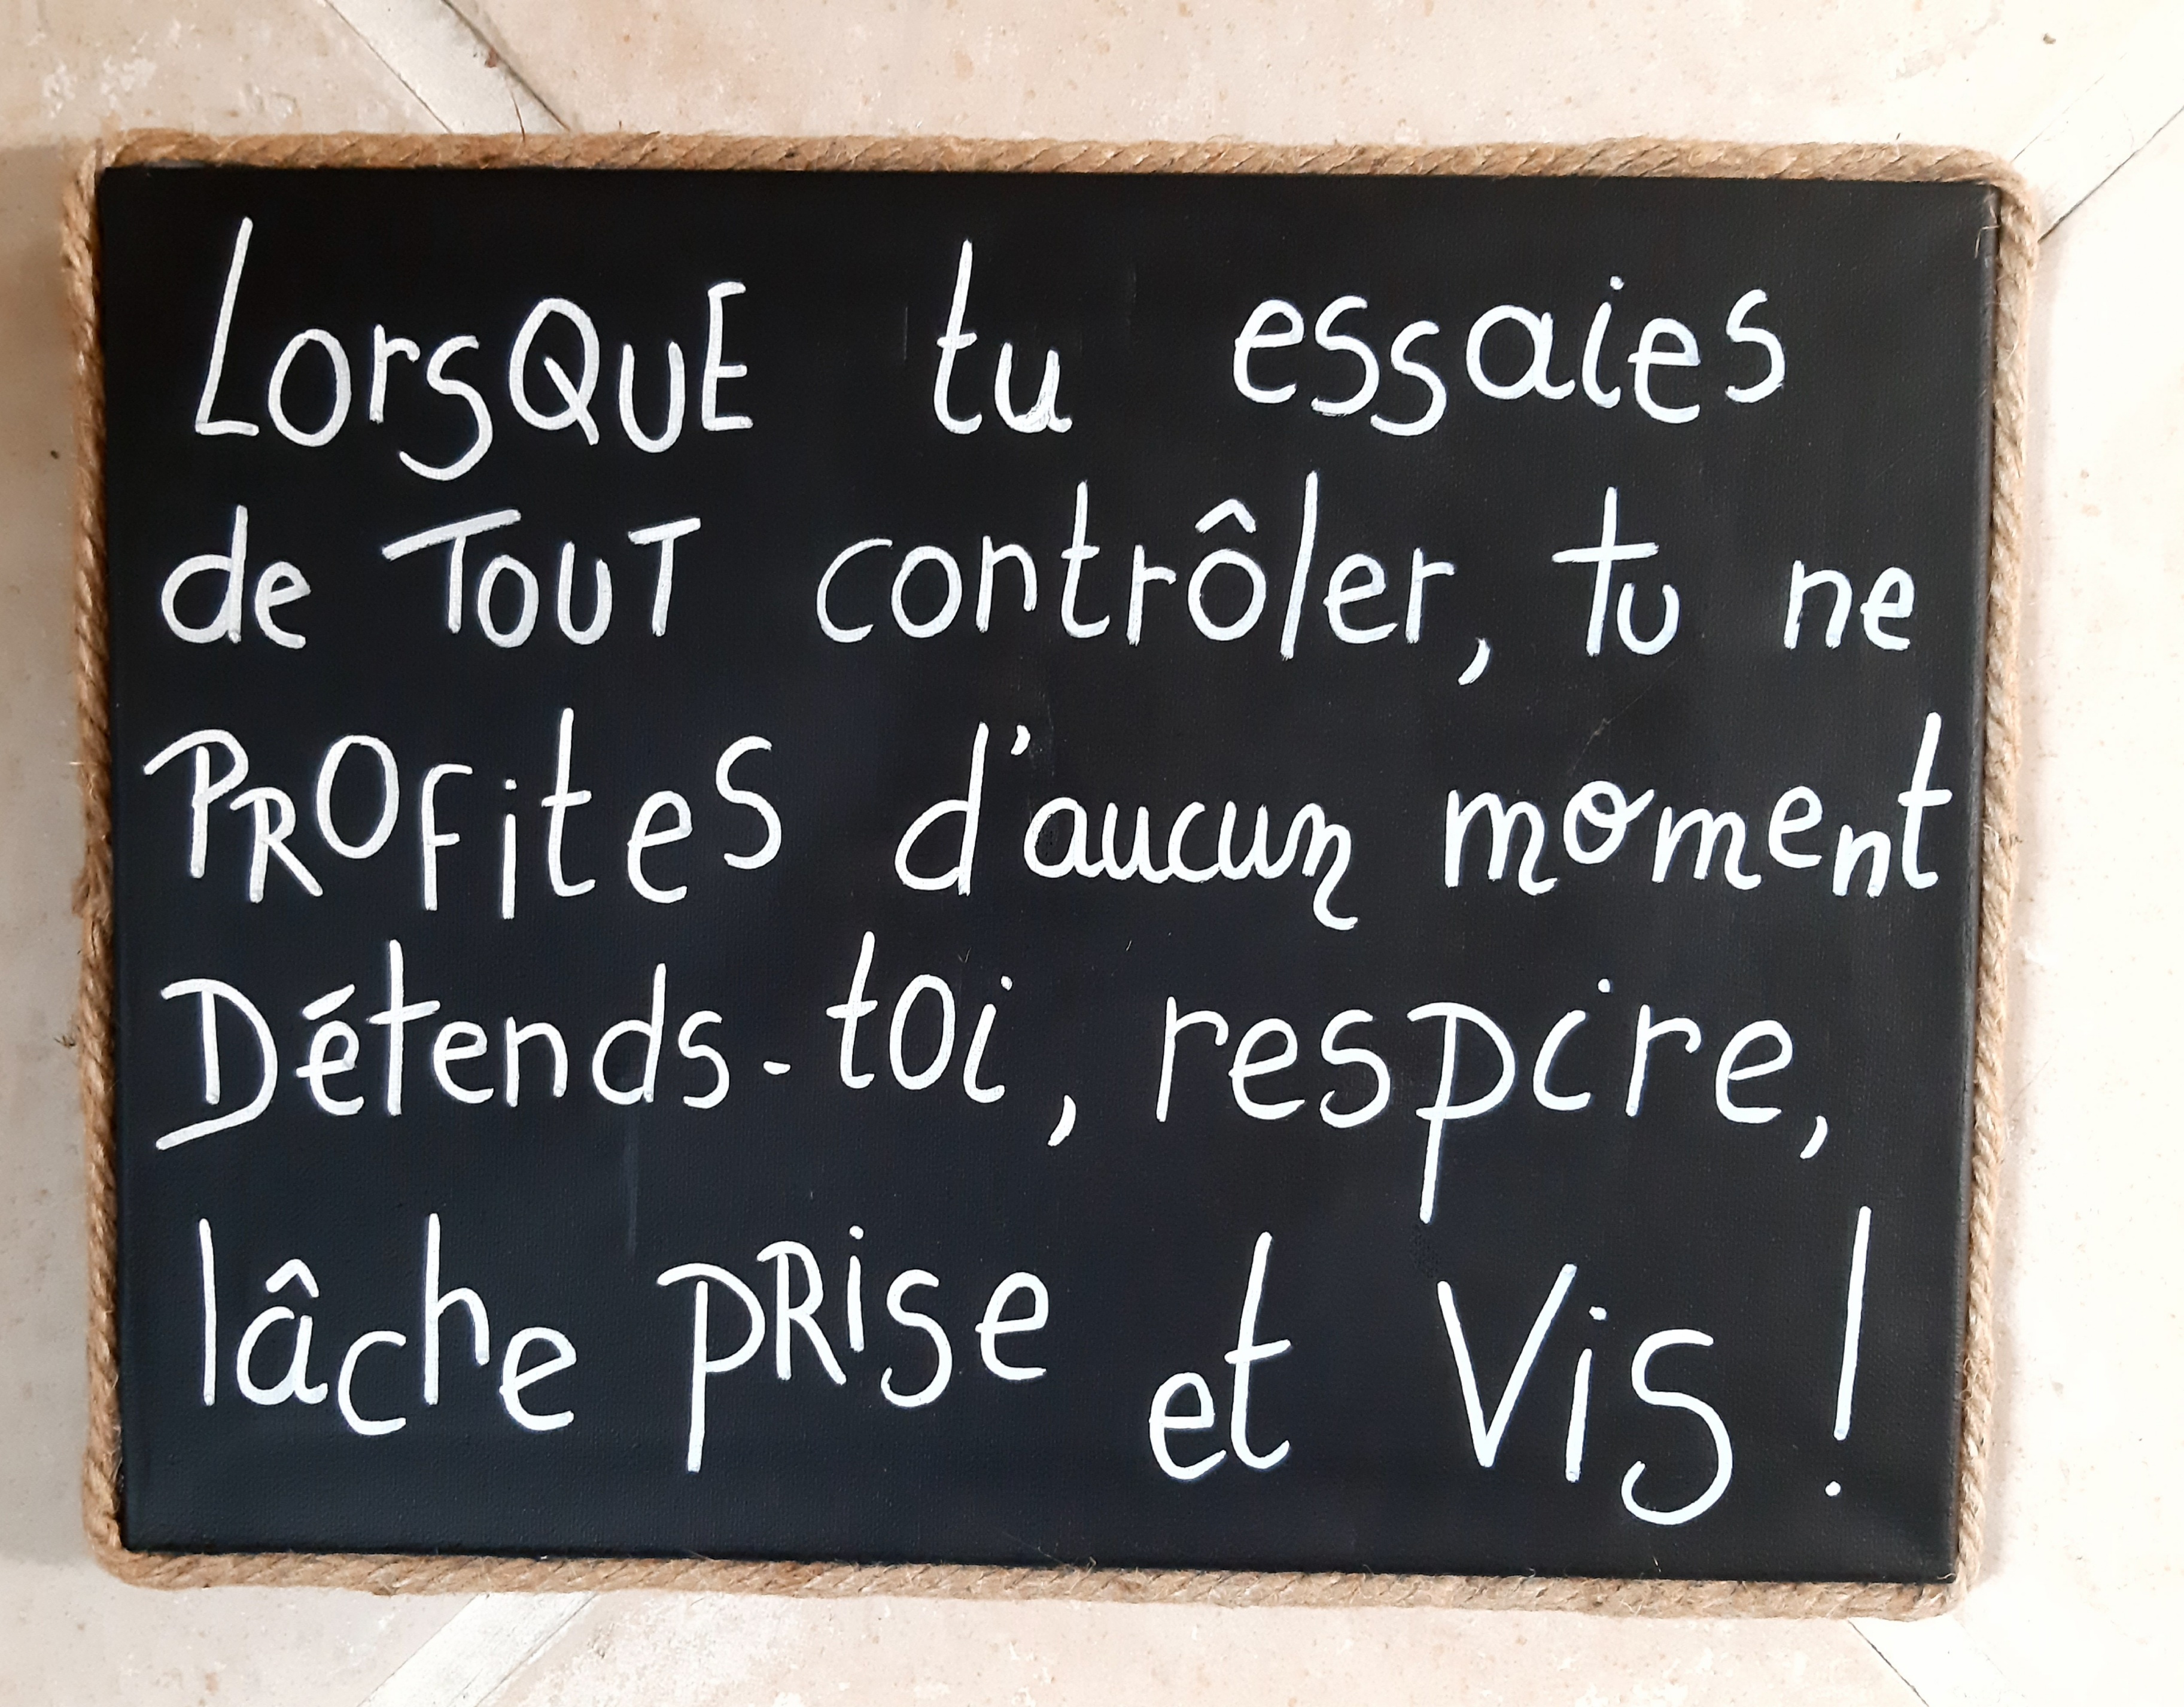 LorsQUE tu essaies
de TOUT contrôler, tu ne
PROFites d'aucun moment
Détends-toi, respire,
lâche pRise et Vis !